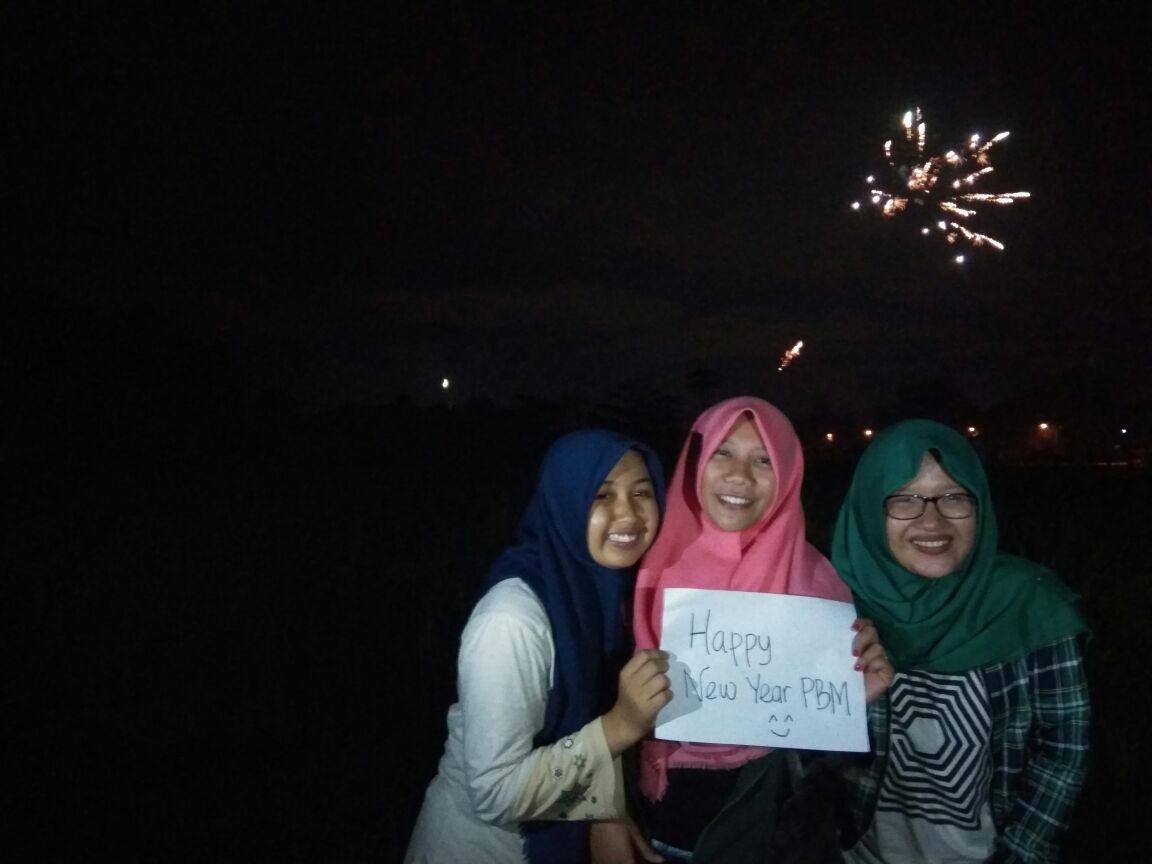 Happy
New Year PBM